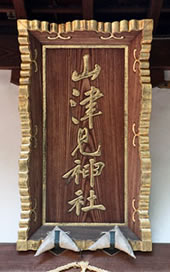 山津見神社